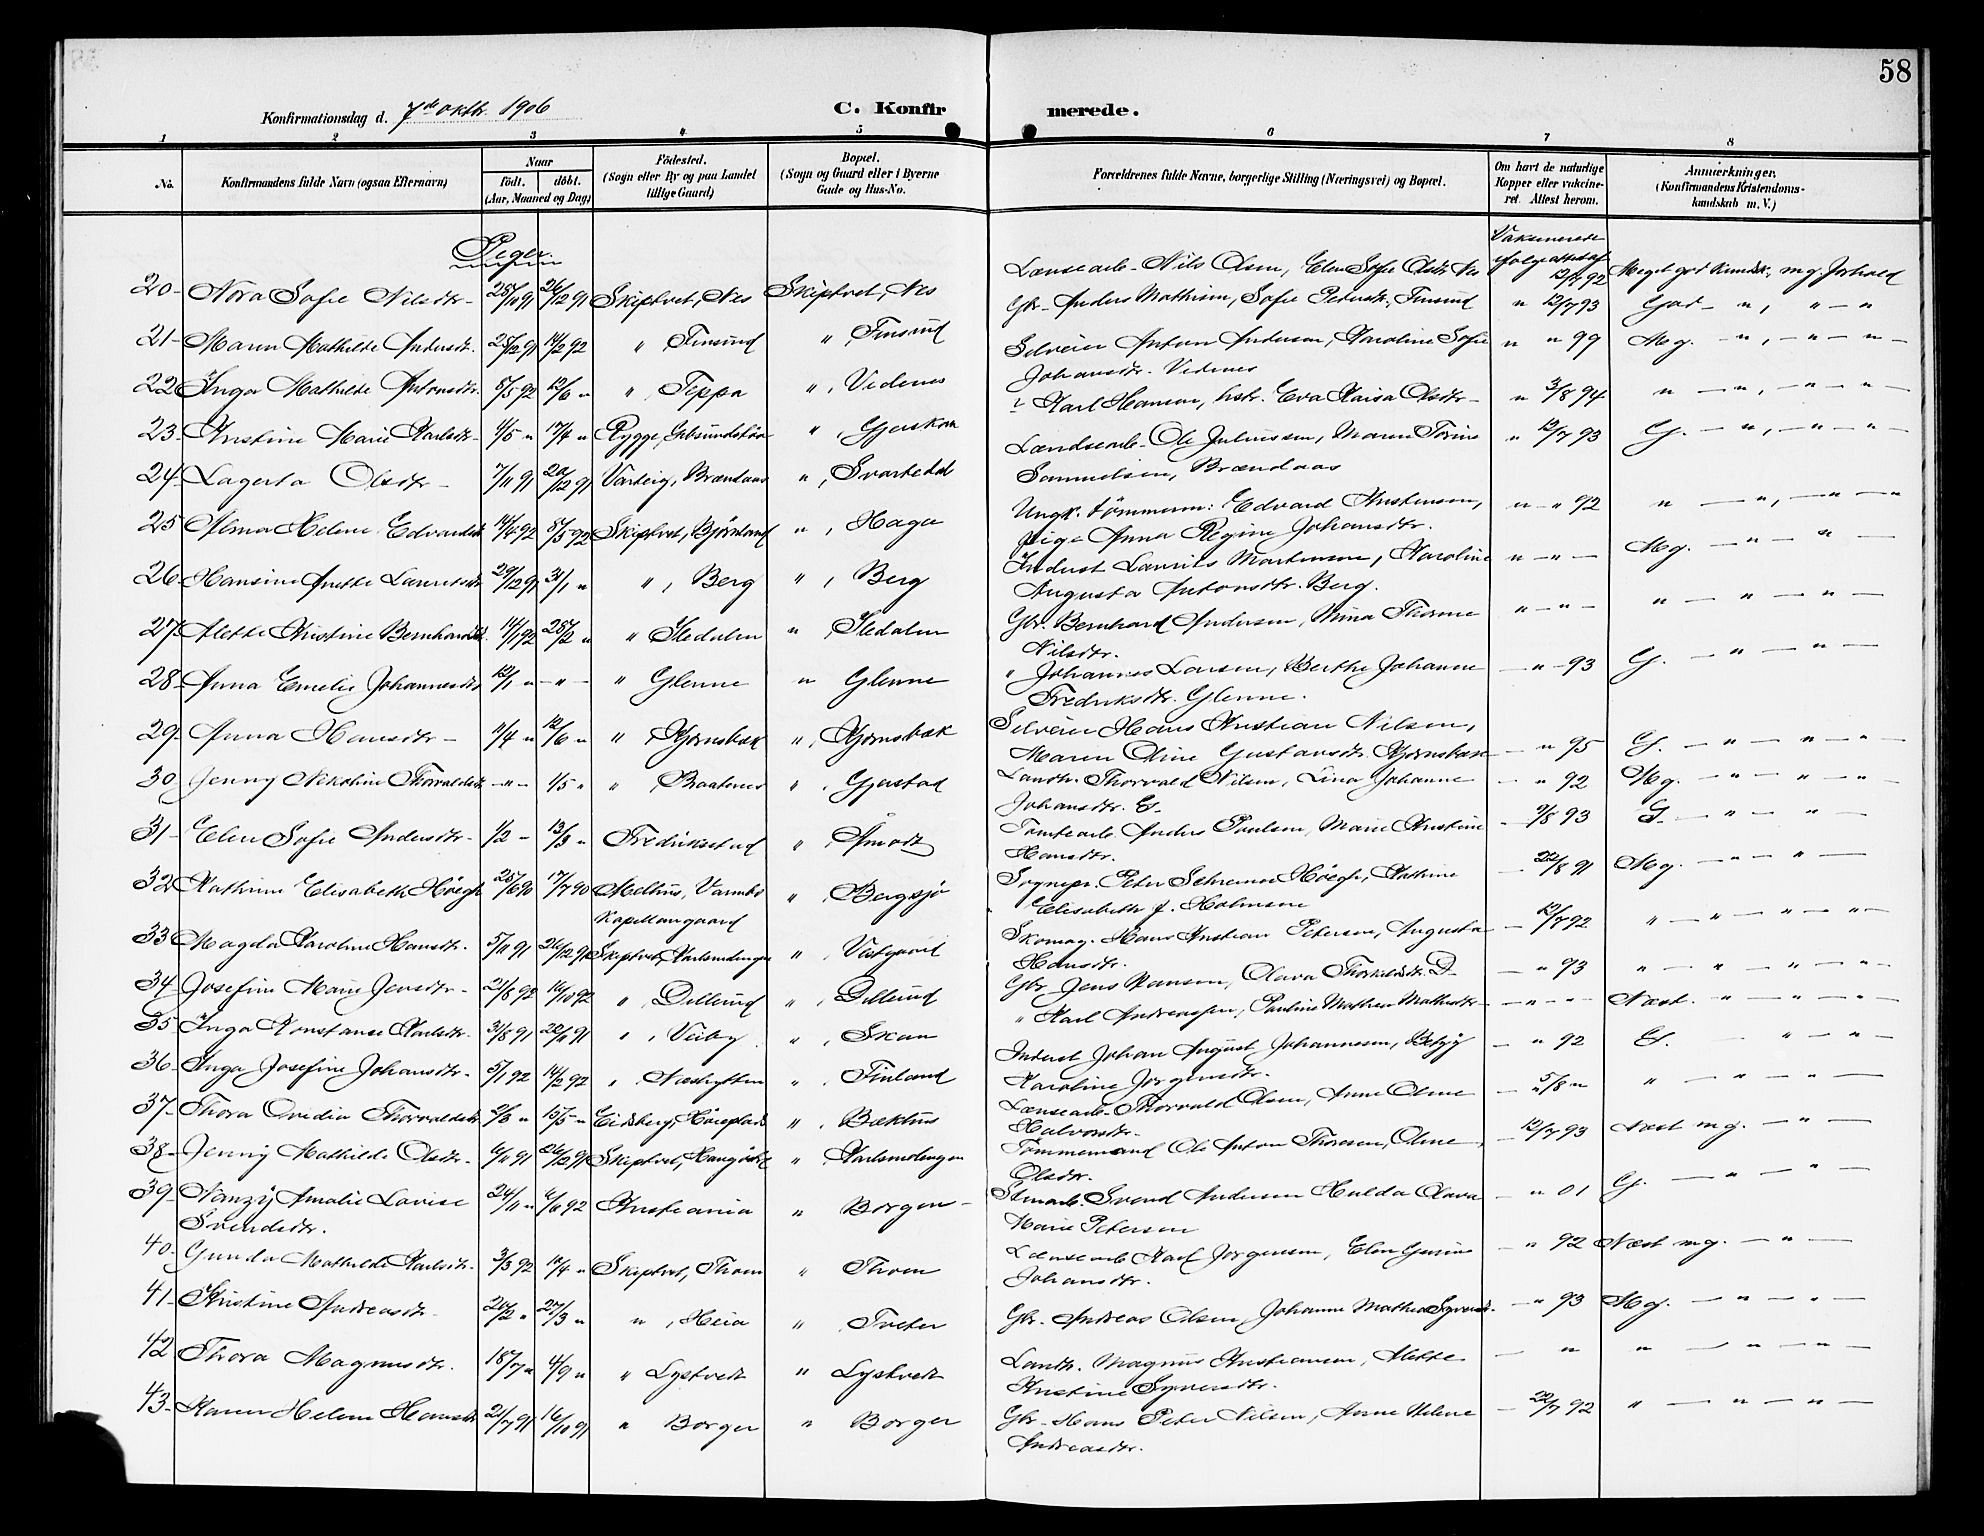 58
Konfirmationsdag d. 7de oktbr. 1906
C. Konfirmerede.
1 2 3 4 5 6 7 8
No.
Konfirmandens fulde Navn (ogsaa Efternavn)
Naar
födt. döbt.
(Aar, Maaned og Dag)
Födested.
(Sogn eller By og paa Landet
tillige Gaard)
Bopæl.
(Sogn og Gaard eller i Byerne
Gade og Hus-No.
Forældrenes fulde Navne, borgerlige Stilling (Næringsvei) og Bopæl.
Om havt de naturlige
Kopper eller vakcine-
ret. Attest herom.
Anmærkninger.
(Konfirmandens Kristendoms-
kundskab m. V.)
Piger.
20 - Nora Sofie Nilsdtr - 25/10 91 26/12 91 Skiptvet, Nes Skiptvet, Nes Lænsearb. Nils Olsen, Elen Sofie Olsdtr Nes 12/7 92 Meget god Kundsk., mg. Forhold
21 - Maren Mathilde Andersdtr. 25/12 91 14/2 92 " Finsund " , Finsund Gbr. Anders Mathisen, Sofie Pedersdtr, Finsund " 12/7 93 God - " , " - "
22 Inga Mathilde Antonsdtr. 5/5 92 12/6 " " , Teppa " , Vidnes Selveier Anton Andersen, Karoline Sofie " " 99 Mg. - " , - " - " -
Johansdtr. Vidnes
23 - Kristine Marie Karlsdtr - 4/5 " 17/4 " Rygge, " , Karl Hansen, hstr. Eva Kaisa Olsdtr - " 3/8 94 " - " , - " - " -
24 - Lagerta Olsdtr - 7/11 91 20/12 91 Varteig, Brændaas " , Svartedal Lændsearb. Ole Juliussen, Maren Torine " 12/7 93 G. - " , - " - " -
Samuelsen, Brændaas
25 Alma Helene Edvardsdtr 14/4 92 8/5 92 Skiptvet, Björnland " , Haga Ungk. tömmerm: Edvard Kristensen, " - " 92 " - " , - " - "
pige Anna Regine Johansdtr.
26 - Hansine Anette Lauritsdtr 29/12 91 31/1 " " , Berg " , Berg Inderst Laurits Martinsen, Karoline " - " - Mg. - " - " -
Augusta Antonsdtr. Berg.
27. Alette Kristine Bernhardsdtr. 14/1 92 28/2 " " Sledalen " , Sledalen Gbr. Bernhard Andersen, Mina Thorine " - " - " - " - " -
Nilsdtr.
28 - Anna Emelie Johannesdtr 12/1 " - " - " Glenne " Glenne " Johannes Larsen, Berthe Johanne - " - 93 G. - " - " -
Fredriksdtr. Glenne.
29 - Anna Hansdtr - 11/4 " 12/6 " " , Kjörnsbæk " , Kjörnsbæk Selveier Hans Kristian Nilsen,
Maren Oline Gustavsdtr. Kjörnsbæk - " 95 G. - " - " - " -
30 Jenny Nekoline Thorvaldsdtr - " - 1/5 " " , Baatnes " , Gjerstad Landh. Thorvald Nilsen, Lina Johanne - " 92 Mg. - " - " - " -
Johansdtr. G.
31 - Elen Sofie Andersdtr - 1/2 - 13/3 " Fredrikstad " , Aamodt Tomtearb. Anders Paulsen, Marie Kristine - 9/8 93 G. - " - " -
Hansdtr.
32 Kathrine Elisabeth Höegh 25/6 90 17/7 90 Melhus, Bergsjö Sognepr. Peter Schreiner Höegh, Kathrine - 22/8 91 Mg. - " - " -
Kapellangaard Elisabeth f. Holmsen
33 Magda Karoline Hansdtr. 5/11 91 26/12 91 Skiptvet, Karlsmolengen " , Vestgaard Skomag. Hans Kristian Petersen, Augusta - 12/7 92 " - " - " - " -
Hansdtr.
34 - Josefine Marie Jensdtr - 21/8 92 16/10 92 " , Dillerud " , Dillerud Gbr. Jens Hansen, Olava Thorkildsdtr. D - " 93 " - " - " - " -
35 - Inga Konstanse Karlsdtr. 31/8 91 22/11 91 " , Veiby " , Skaun " Karl Andreassen, Pauline Mathea Mathisdtr - " - " - Næst. " - " - " -
36 - Inga Josefine Johansdtr - 5/1 92 14/2 92 " , Næshytten " , Finland Inderst Johan August Johannessen, Betzy - " 92 G. " - " -
Karoline Jörgensdtr.
37 - Thora Ovedia Thorvaldsdtr 2/3 " 15/5 " Eidsberg, " , Bækhus Lænsearb. Thorvald Olsen, Anne Oline - 5/8 " " - " - " -
Halvorsdtr.
38 - Jenny Mathilde Olsdtr - 6/11 91 26/12 91 Skiptvet, " , Karlsmolengen Tömmermand Ole Anton Thoresen, Oline - 12/7 93 Næst mg. - " -
Olsdtr.
39 - Nanzÿ Amalie Lovise 24/11 " 6/6 92 Kristiania " Borgen - Svend Andersen Hulda Olava - " 01 G. - " - " -
Svendsdtr. Marie Petersen
40. Gunda Mathilde Karlsdtr. 3/3 92 10/4 " Skiptvet, Thoen " Thoen Lænsearb Karl Jörgensen, Elen Gurine - " 92 Næst mg. - " -
Johansdtr.
41 - Kristine Andreasdtr. 20/2 " 27/3 " " , Heia " Tveter Gbr. Andreas Olsen, Johanne Mathea Syversdtr. - " 93 Mg. - " - " -
42 Thora Magnusdtr. 18/7 " 4/9 " " Lystvedt " Lystvedt Landh. Magnus Kristiansen, Alette - " " - " - " -
Kristine Syversdtr.
43 - Karen Helene Hansdtr 21/7 91 16/10 91 " Borger " Borger Gbr. Hans Peter Nilsen, Anne Helene - 22/7 92 " - " - " -
Andreasdtr.